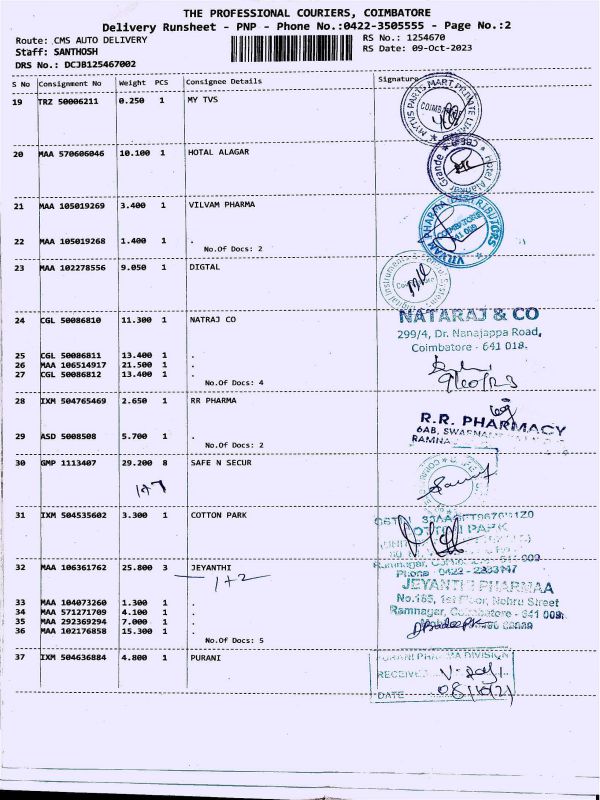 THE PROFESSIONAL COURIERS, COIMBATORE
Delivery Runsheet - PNP - Phone No.:0422-3505555 - Page No.:2
Route: CMS AUTO DELIVERY RS No.: 1254670
Staff: SANTHOSH RS Date: 09-Oct-2023
DRS No.: DCJB125467002
S No Consignment No Weight PCS Consignee Details Signature
19 TRZ 50006211 0.250 1 MY TVS
MYTVS PARTS MART PRIVATE LIMITED
COIMBATORE
20 MAA 570606046 10.100 1 HOTAL ALAGAR
Grande Hotel Alankar
21 MAA 105019269 3.400 1 VILVAM PHARMA
VILVAM PHARMA DISTRIBUTORS
COIMBATORE
22 MAA 105019268 1.400 1 .
No.Of Docs: 2
23 MAA 102278556 9.050 1 DIGTAL
24 CGL 50086810 11.300 1 NATRAJ CO
NATARAJ & CO
299/4, Dr. Nanajappa Road,
Coimbatore - 641 018.
25 CGL 50086811 13.400 1 .
26 MAA 106514917 21.500 1 .
27 CGL 50086812 13.400 1 .
No.Of Docs: 4
28 IXM 504765469 2.650 1 RR PHARMA
R.R. PHARMACY
6AB,
RAMNA
29 ASD 5008508 5.700 1 .
No.Of Docs: 2
30 GMP 1113407 29.200 8 SAFE N SECUR
1+7
31 IXM 504535602 3.300 1 COTTON PARK
32 MAA 106361762 25.800 3 JEYANTHI
1+2
JEYANTHI PHARMAA
No.185, 1st Floor, Nehru Street
Ramnagar, Coimbatore - 641 009.
33 MAA 104073260 1.300 1 .
34 MAA 571271709 4.100 1 .
35 MAA 292369294 7.000 1 .
36 MAA 102176858 15.300 1 .
No.Of Docs: 5
37 IXM 504636884 4.800 1 PURANI
PURANI PHARMA DIVISION
RECEIVE
DATE